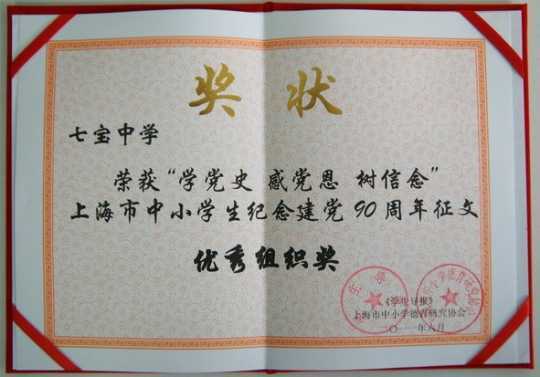 奖状
七宝中学
荣获“学党史 感党恩 树信念”
上海市中小学生纪念建党90周年征文
优秀组织奖
《学生导报》
上海市中小学德育研究协会
二〇一一年八月